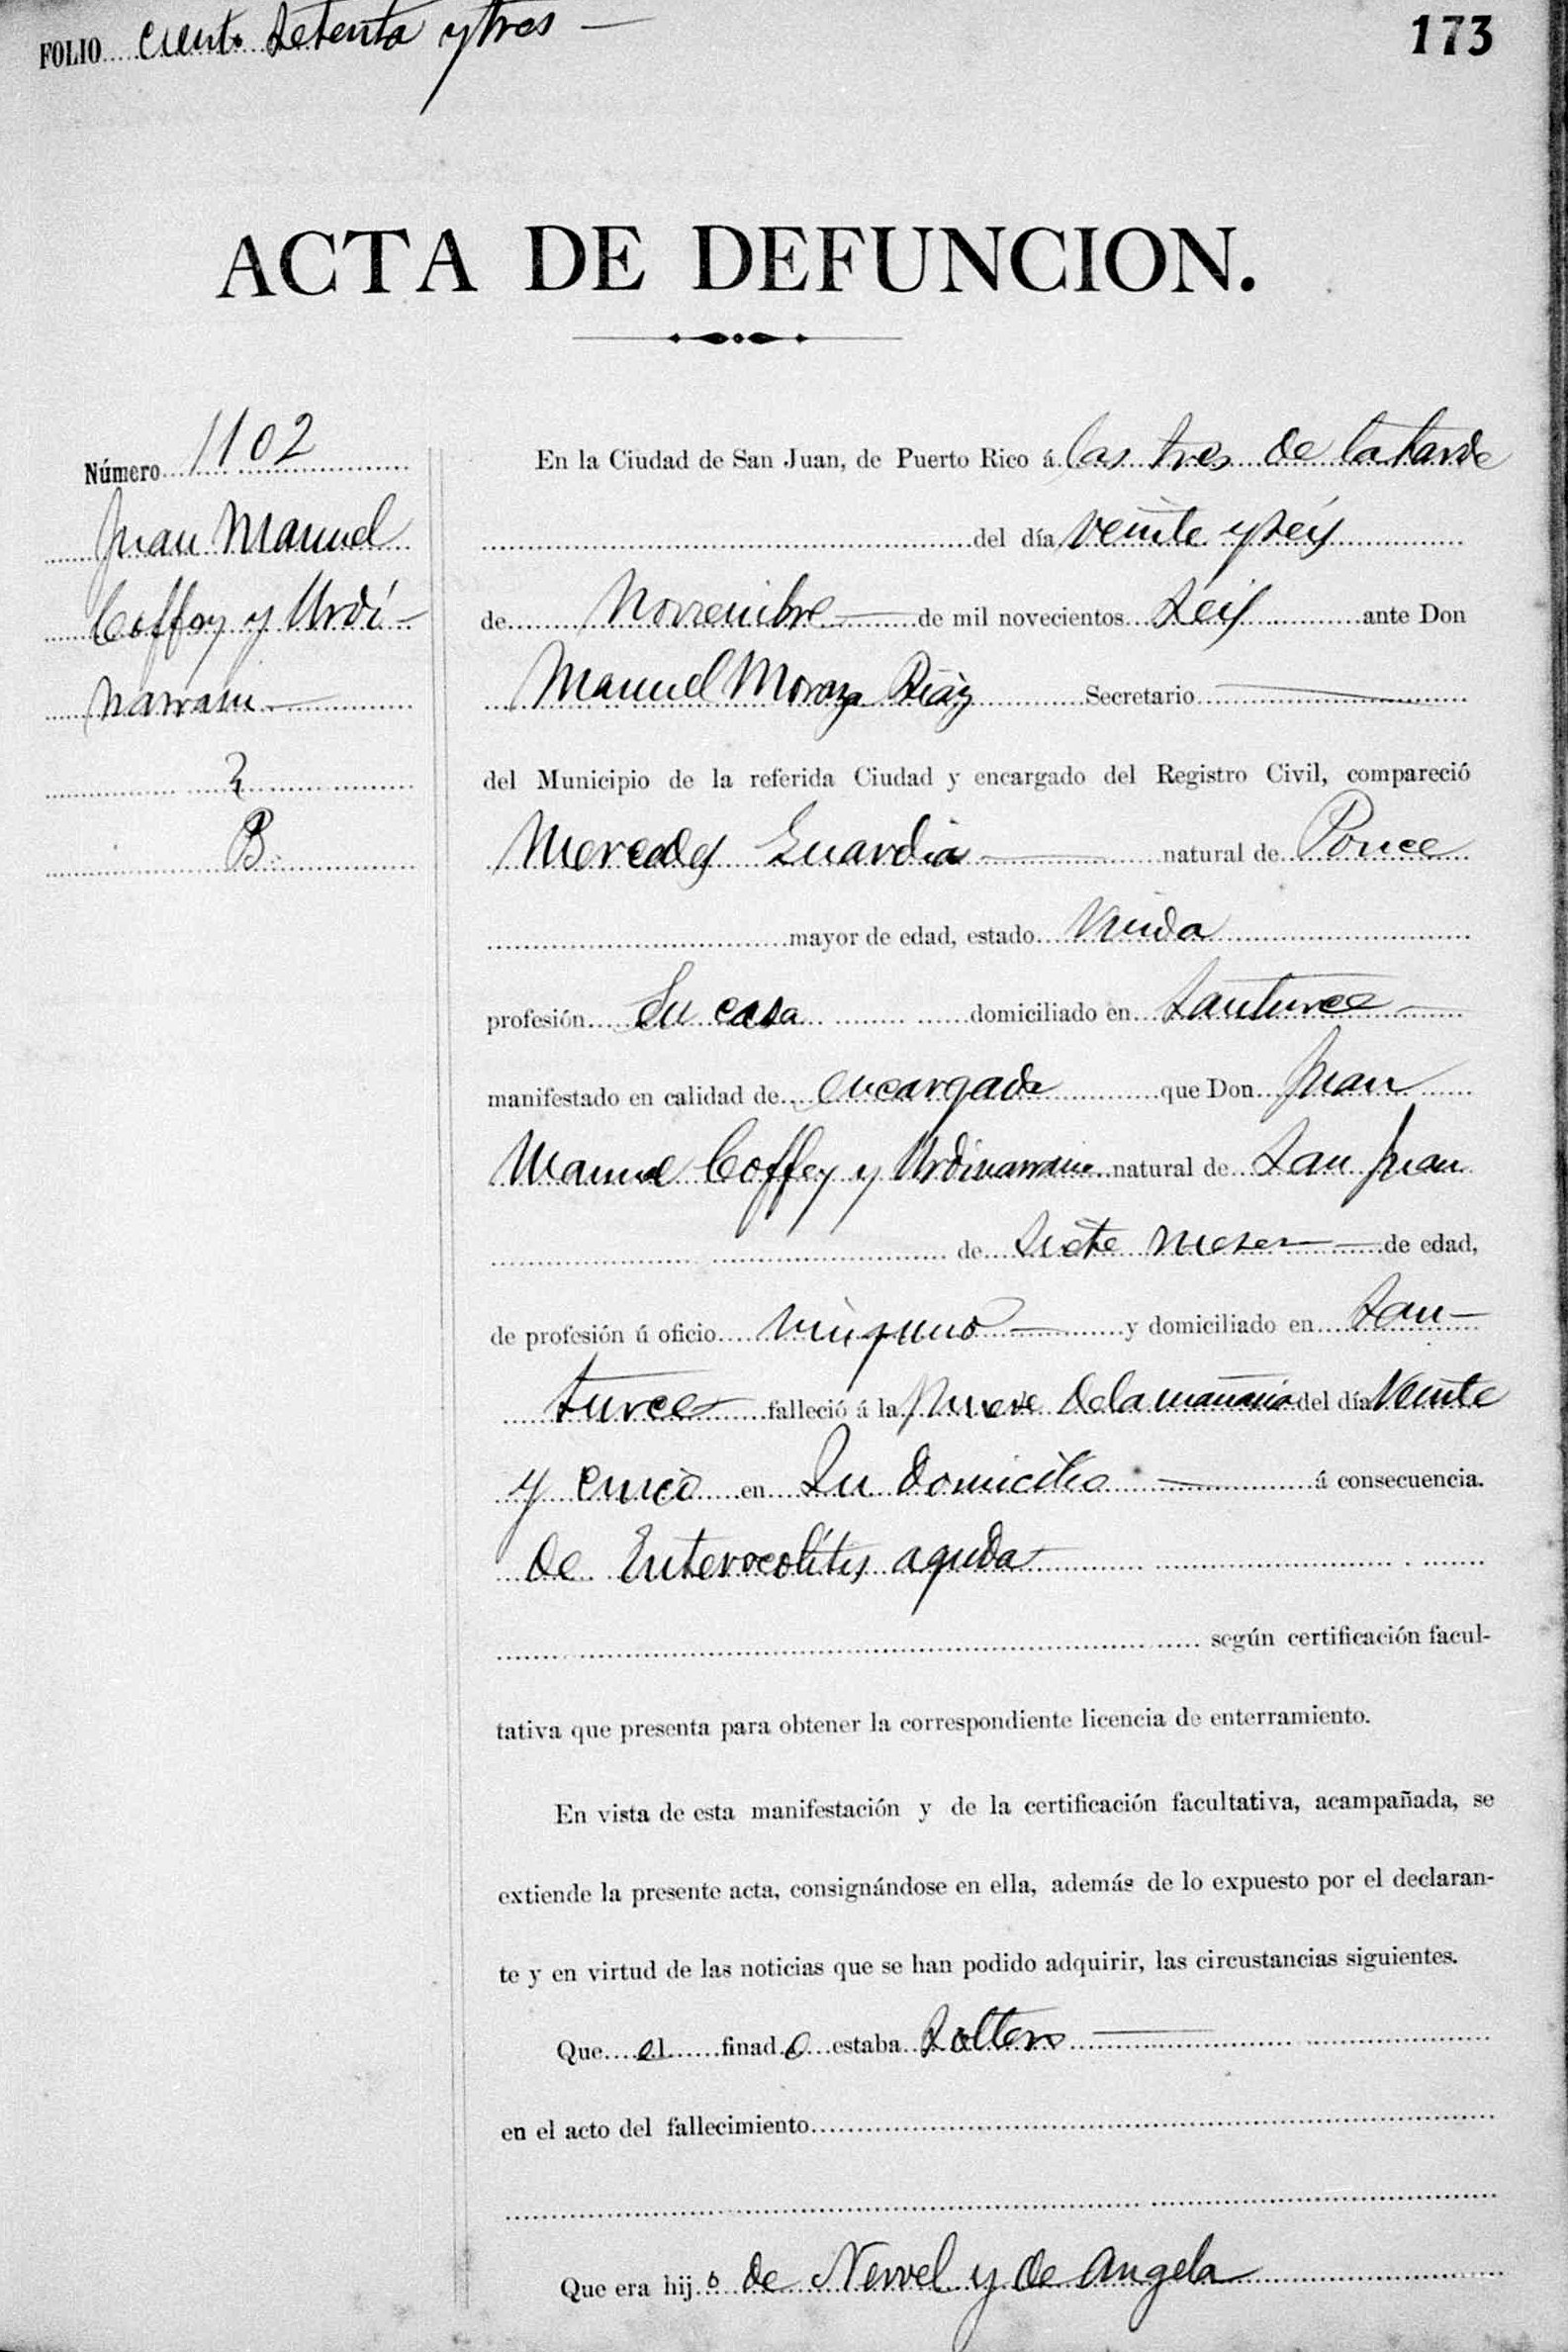 FOLIO ciento setenta y tres
173
ACTA DE DEFUNCION.
Número 1102
Juan Manuel
Coffey y Urdi-
narrain
2
B
En la Ciudad de San Juan, de Puerto Rico á las tres de la tarde
del día veinte y seis
de Noviembre de mil novecientos Seis ante Don
Manuel Moraza Diaz Secretario
del Municipio de la referida Ciudad y encargado del Registro Civil, compareció
Mercedes Guardia natural de Ponce
mayor de edad, estado Viuda
profesión Su casa domiciliado en Santurce
manifestado en calidad de encargada que Don Juan
Manuel Coffey y Urdinarrain natural de San Juan
de Siete meses de edad,
de profesión ú oficio ninguno y domiciliado en San-
turce falleció á la nueve de la mañana del día Veinte
y cinco en Su domicilio á consecuencia.
de Enterocolitis aguda
según certificación facul-
tativa que presenta para obtener la correspondiente licencia de enterramiento.
En vista de esta manifestación y de la certificación facultativa, acampañada, se
extiende la presente acta, consignándose en ella, además de lo expuesto por el declaran-
te y en virtud de las noticias que se han podido adquirir, las circustancias siguientes.
Que el finado estaba Soltero
en el acto del fallecimiento
Que era hijo de Newel y de Angela